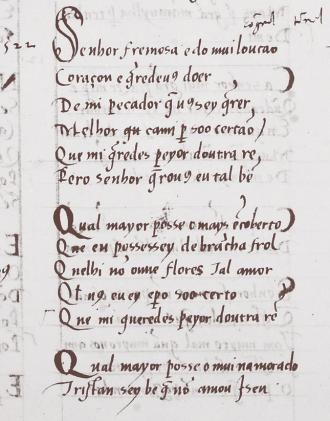 522
Senhor fremosa e do mui loução
Coraçon e q̃redeuꝯ doer
De mi pecador q̃ uꝯ sey q̃rer
Melhor qa mi ꝑ soo certão
Que mi q̃redes peyor doutra rẽ
Pero senhor q̃rouꝯ eu tal bẽ
Qual mayor posse o mays
Que eu posse sey de brãcha frol
Quelhi nõ ouue flores Tal amor
uꝯ eu ey e ꝑo soo certo
Que mi queredes peyor doutra rẽ
Qual mayor posse o mui namorado
Tristan sey bẽ q̃ nõ amou Iseu